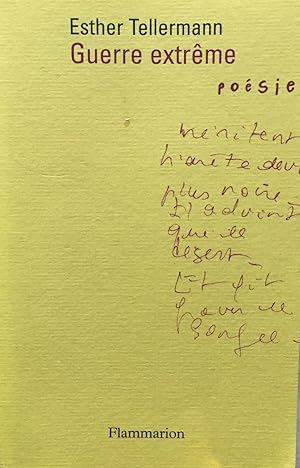 Esther Tellermann
Guerre extrême
poésie
méritent
plus noire
Il advint
que le
désert
Et
Flammarion